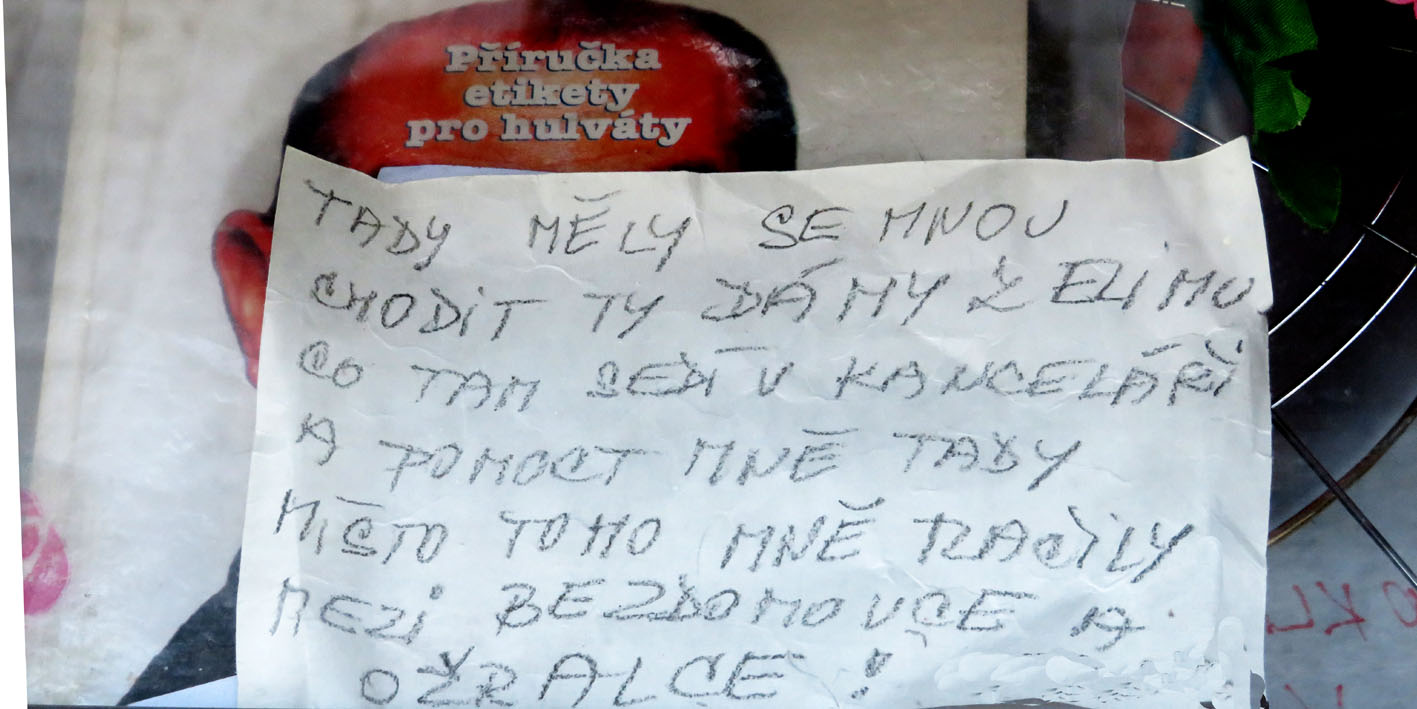 Příručka
etikety
pro hulváty
TADY MĚLY SE MNOU
CHODIT TY DÁMY Z ELIMU
CO TAM SEDÍ V KANCELÁŘI
A POMOCT MNĚ TADY
MÍSTO TOHO MNĚ TLAČILY
MEZI BEZDOMOVCE A
OŽRALCE !